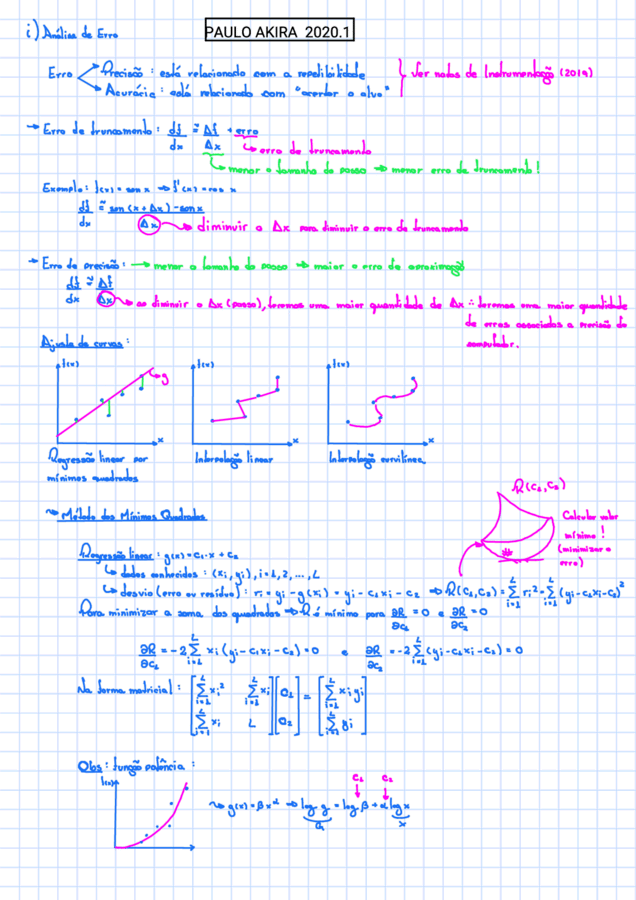 i) Análise de Erro
PAULO AKIRA 2020.1
Erro
Precisão : está relacionado com a repetibilidade
Acurácia : está relacionado com "acertar o alvo"
Ver notas de Instrumentação (2019)
→ Erro de truncamento : df/dx ≅ Δf/Δx + erro
↳ erro de truncamento
↳ menor o tamanho do passo → menor erro de truncamento !
Exemplo : f(x) = sen x → f'(x) = cos x
df/dx ≅ sen(x + Δx) - sen x / Δx
→ diminuir o Δx para diminuir o erro de truncamento
→ Erro de precisão : → menor o tamanho do passo → maior o erro de aproximação
df/dx ≅ Δf/Δx
→ ao diminuir o Δx (passo), teremos uma maior quantidade de Δx ∴ teremos uma maior quantidade
de erros associados a precisão do
computador.
Ajuste de curvas :
f(x) g x
f(x) x
f(x) x
Regressão linear por
mínimos quadrados
Interpolação linear
Interpolação curvilínea
R(c₁, c₂)
Calcular valor
mínimo !
(minimizar o
erro)
→ Método dos Mínimos Quadrados
Regressão linear : g(x) = c₁·x + c₂
↳ dados conhecidos : (xi, yi), i = 1, 2, ..., L
↳ desvio (erro ou resíduo) : ri = yi - g(xi) = yi - c₁xi - c₂ → R(c₁, c₂) = Σ(i=1 a L) ri² = Σ(i=1 a L) (yi - c₁xi - c₂)²
Para minimizar a soma dos quadrados → R é mínimo para ∂R/∂c₁ = 0 e ∂R/∂c₂ = 0
∂R/∂c₁ = -2 Σ(i=1 a L) xi (yi - c₁xi - c₂) = 0 e ∂R/∂c₂ = -2 Σ(i=1 a L) (yi - c₁xi - c₂) = 0
Na forma matricial : [Σ(i=1 a L) xi² Σ(i=1 a L) xi ; Σ(i=1 a L) xi L] [c₁ ; c₂] = [Σ(i=1 a L) xi yi ; Σ(i=1 a L) yi]
Obs : função potência :
f(x)
c₁ c₂
→ g(x) = βx^α → log g = log β + α log x
x